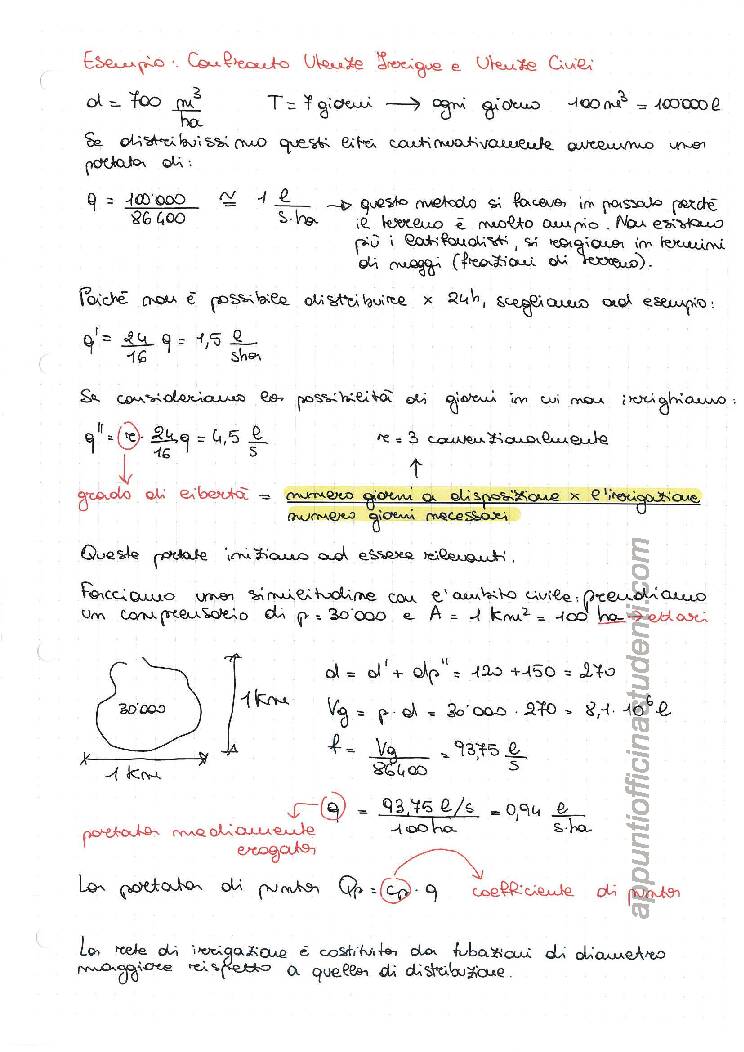 Esempio: Confronto Utenze Irrigue e Utenze Civili
d = 700 m³/ha T = 7 giorni → ogni giorno 100 m³ = 100'000 l
Se distribuissimo questi litri continuativamente avremmo una
portata di:
q = 100'000/86400 ≅ 1 l/s·ha → questo metodo si faceva in passato perché
il terreno è molto ampio. Non esistono
più i latifondisti, si ragiona in termini
di maggi (frazioni di terreno).
Poiché non è possibile distribuire x 24h, scegliamo ad esempio:
q' = 24/16 q = 1,5 l/sha
Se consideriamo la possibilità di giorni in cui non irrighiamo:
q'' = r · 24/16 q = 4,5 l/s r = 3 convenzionalmente
grado di libertà = numero giorni a disposizione x l'irrigazione
numero giorni necessari
Queste portate iniziano ad essere rilevanti.
Facciamo una similitudine con l'ambito civile: prendiamo
un comprensorio di p = 30'000 e A = 1 Km² = 100 ha → ettari
30'000
1 Km
1 Km
d = d' + dp'' = 120 + 150 = 270
Vg = p · d = 30'000 · 270 = 8,1 · 10⁶ l
f = Vg/86400 = 93,75 l/s
q = 93,75 l/s/100 ha = 0,94 l/s·ha
portata mediamente
erogata
La portata di punta Qp = cp · q coefficiente di punta
La rete di irrigazione è costituita da tubazioni di diametro
maggiore rispetto a quella di distribuzione.
appuntiofficinastudenti.com